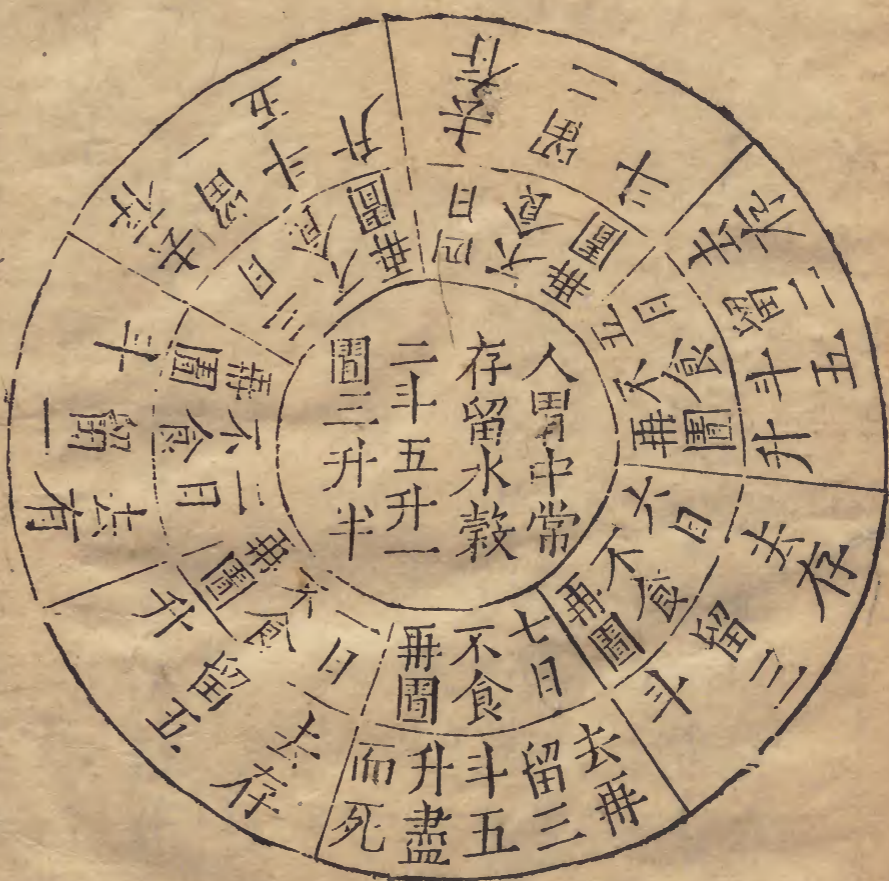 人胃中常
存留水穀
二斗五升一
圊三升半
一日
不食
再圊
去存
留五
升
二日
不食
再圊
去有
留一
斗
三日
不食
再圊
去存
留一
斗五
升
四日
不食
再圊
去存
留二
斗
五日
不食
再圊
去存
留二
斗五
升
六日
不食
再圊
去存
留三
斗
七日
不食
再圊
去再
留三
斗五
升盡
而死